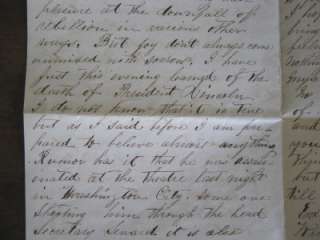 pleasure at the downfall of
rebellion in various other
ways. But joy dont always come
unmixed with sorrow. I have
just this evening learned of the
death of President Lincoln
I do not know that it is true
but as I said before I am pre-
pared to believe almost anything
Rumor has it that he was assas-
inated at the theatre last night
in Washington City. Some one
him through the head
Secretary Seward it is also